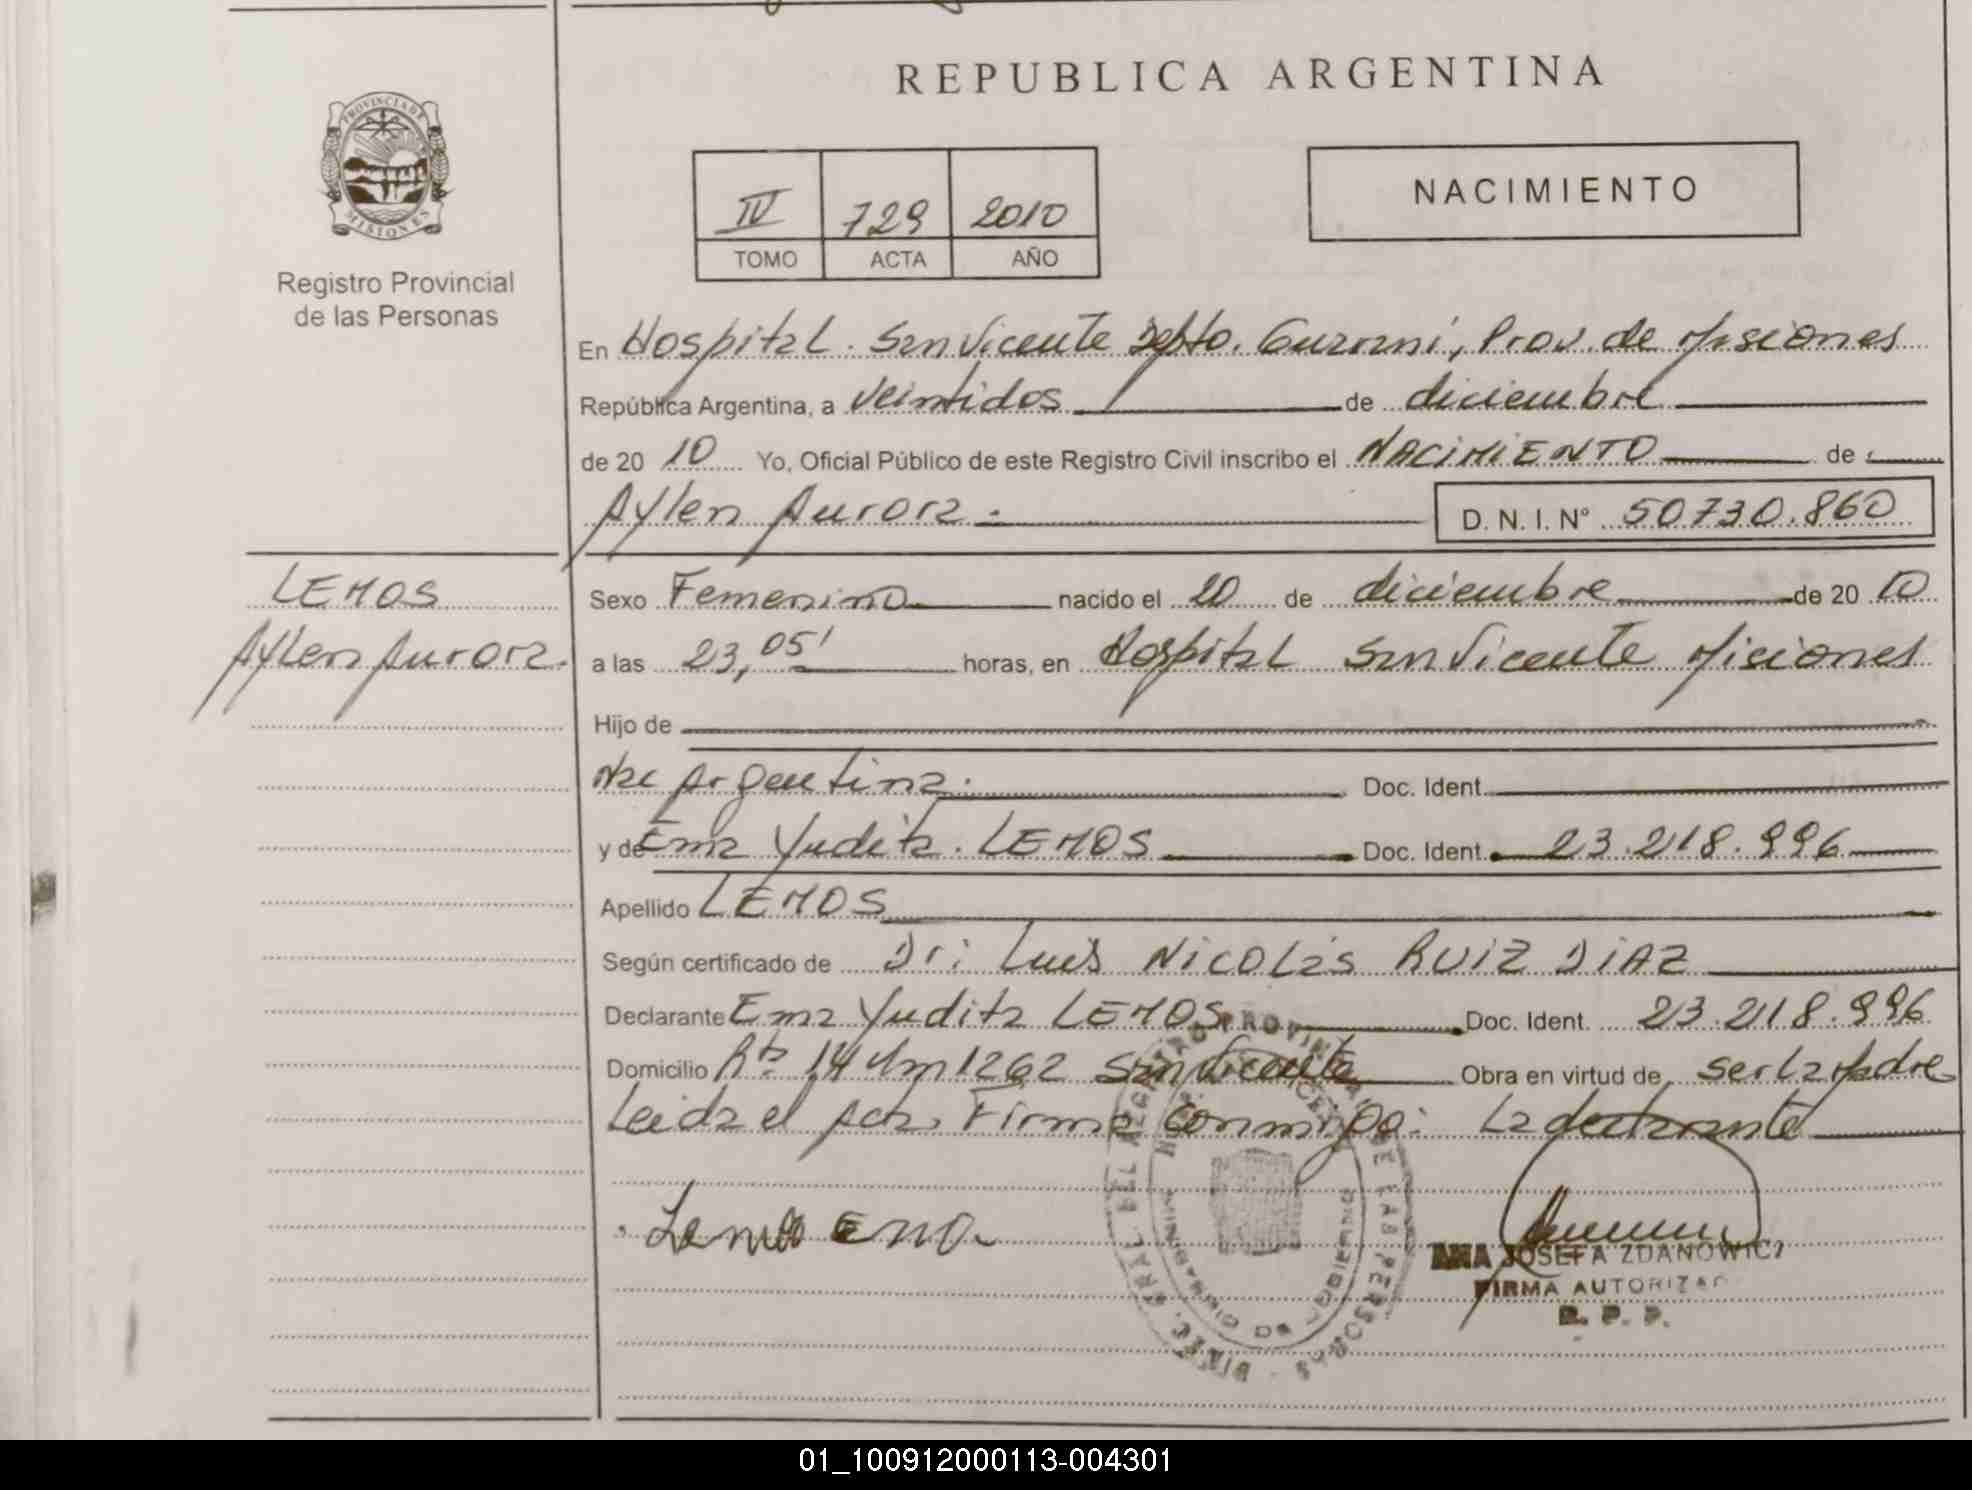 REPUBLICA ARGENTINA
PROVINCIA DE
MISIONES
Registro Provincial
de las Personas
IV 729 2010
TOMO ACTA AÑO
NACIMIENTO
En Hospital. San Vicente Depto. Guarani, Prov. de Misiones
República Argentina, a veintidos de diciembre
de 20 10 Yo, Oficial Público de este Registro Civil inscribo el NACIMIENTO de
Aylen Aurora. D. N. I. Nº 50730.860
LEMOS
Aylen Aurora.
Sexo Femenino nacido el 20 de diciembre de 20 10
a las 23,05' horas, en Hospital San Vicente Misiones
Hijo de
Nac Argentina. Doc. Ident.
y de Ema Yudita. LEMOS Doc. Ident. 23.218.996
Apellido LEMOS
Según certificado de Dr: Luis Nicolás RUIZ DIAZ
Declarante Ema Yudita LEMOS Doc. Ident. 23.218.996
Domicilio Rta 14 Km 1262 San Vicente Obra en virtud de ser la Madre
Leida el Acta, Firma conmigo: La declarante
Lemos Ema
DIREC. GRAL. DEL REGISTRO PROVINCIAL DE LAS PERSONAS
ANA JOSEFA ZDANOWICZ
FIRMA AUTORIZAD
R. P. P.
01_100912000113-004301